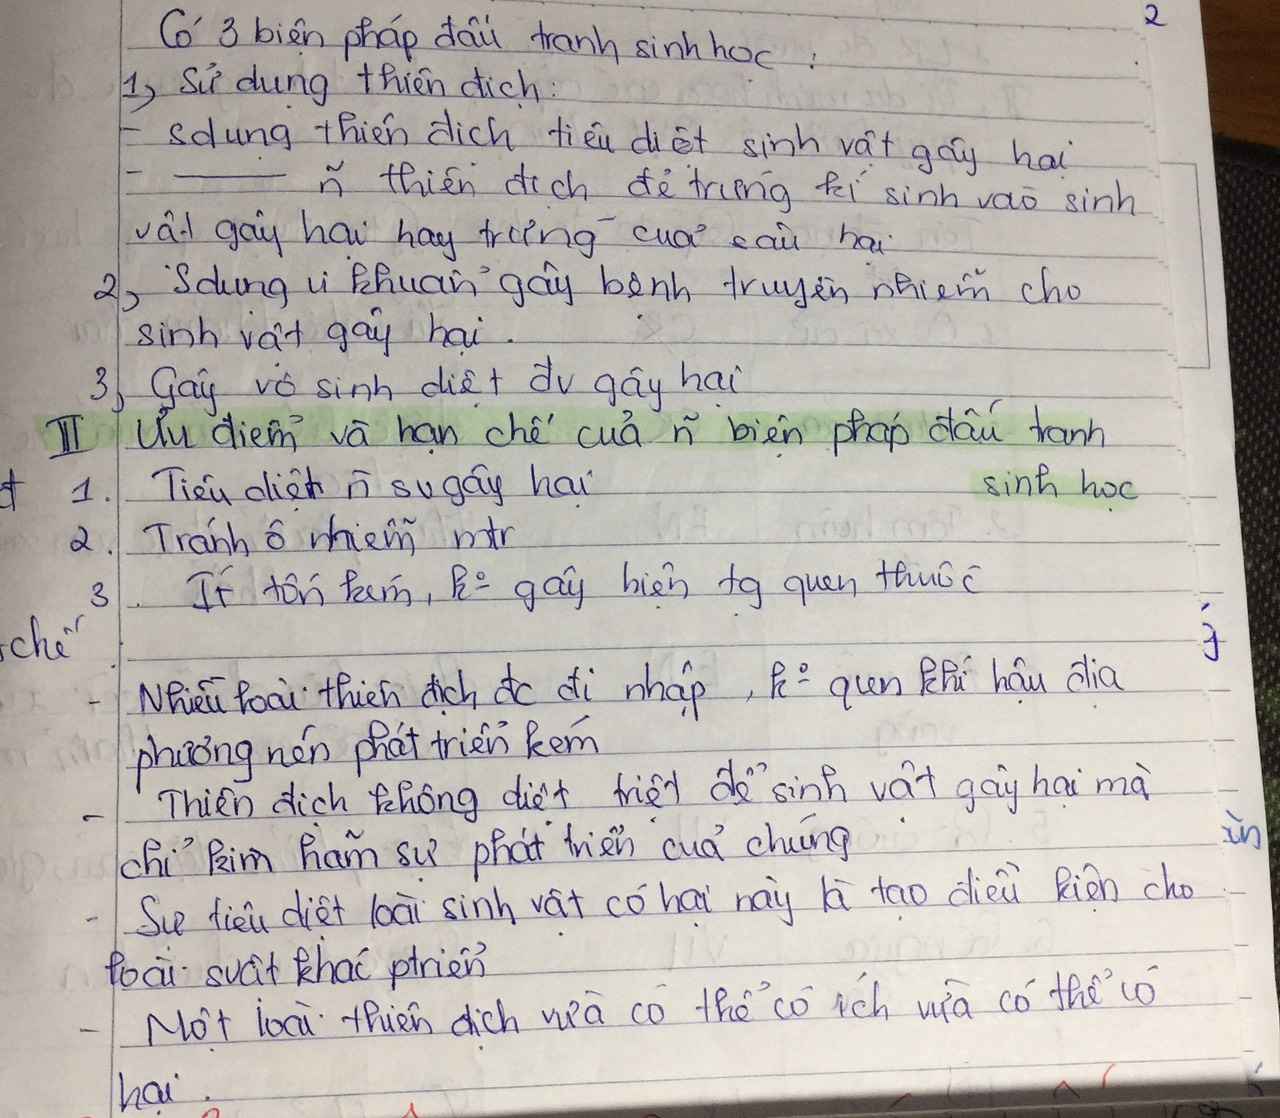 2
Có 3 biện pháp đấu tranh sinh học :
1, Sử dụng thiên địch:
- sdụng thiên địch tiêu diệt sinh vật gây hại
- ——— ñ thiên địch đẻ trứng kí sinh vào sinh
vật gây hại hay trứng của sâu hại
2, Sdụng vi khuẩn gây bệnh truyền nhiễm cho
sinh vật gây hại .
3, Gây vô sinh diệt đv gây hại
II Ưu điểm và hạn chế của ñ biện pháp đấu tranh
sinh học
1. Tiêu diệt ñ sv gây hại
2. Tránh ô nhiễm mtr
3. Ít tốn kém, kº gây hiện tg quen thuốc
chế
- Nhiều loài thiên địch đc di nhập, kº quen khí hậu địa
phương nên phát triển kém
- Thiên địch không diệt triệt để sinh vật gây hại mà
chỉ kìm hãm sự phát triển của chúng
- Sự tiêu diệt loài sinh vật có hại này là tạo điều kiện cho
loài svật khác ptriển
- Một loài thiên địch vừa có thể có ích vừa có thể có
hại .